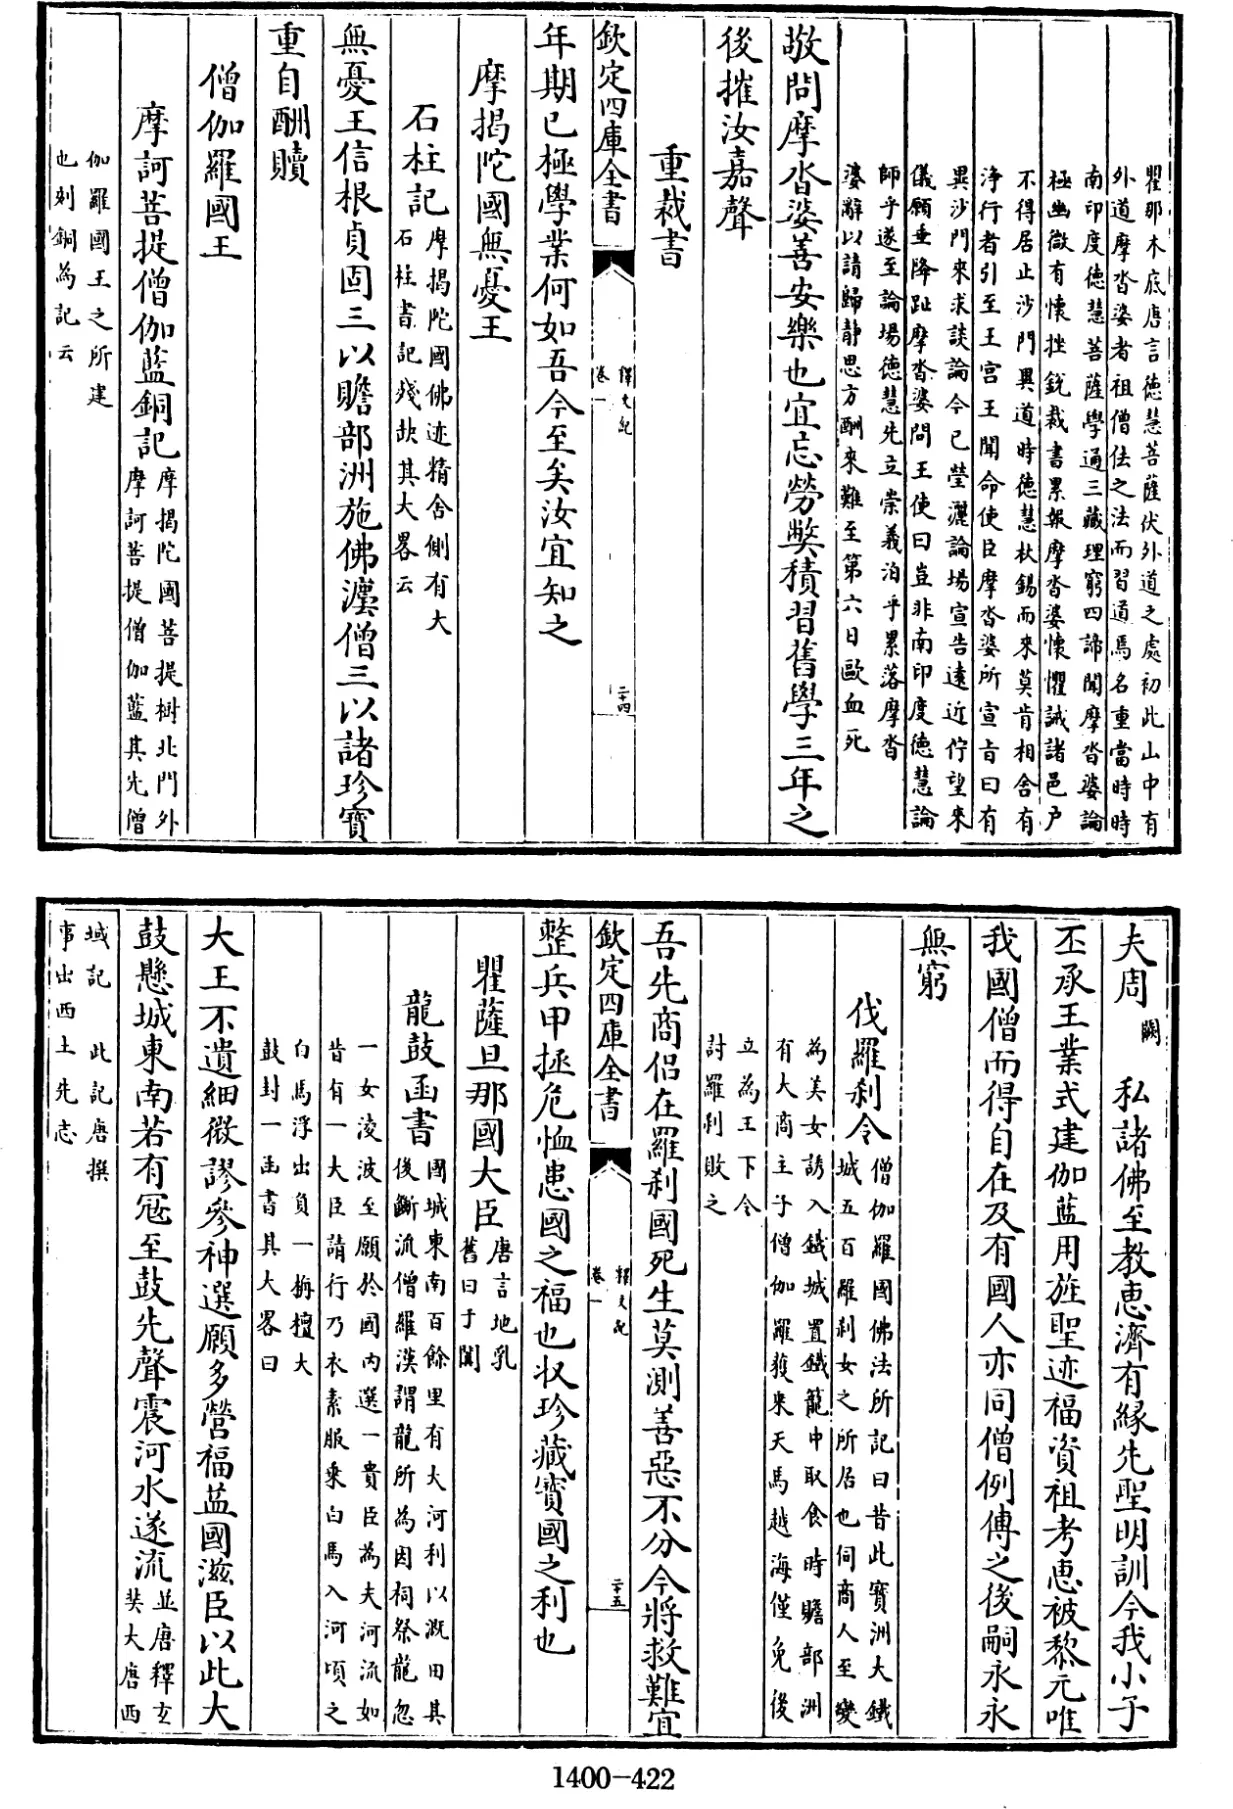 瞿那末底唐言德慧菩薩伏外道之處初此山中有
外道摩沓婆者祖僧佉之法而習道焉名重當時時
南印度德慧菩薩學通三藏理窮四諦聞摩沓婆論
極幽微有懷挫銳裁書累報摩沓婆懷懼誡諸邑戶
不得居止沙門異道時德慧杖錫而來莫肯相舍有
淨行者引至王宮王聞命使臣摩沓婆所宣旨曰有
異沙門來求談論今已瑩灑論場宣告遠近佇望來
儀願垂降趾摩沓婆問王使曰豈非南印度德慧論
師乎遂至論場德慧先立崇義洎乎累落摩沓
婆辭以請歸靜思方酬來難至第六日歐血死
敬問摩沓婆善安樂也宜忘勞獘積習舊學三年之
後摧汝嘉聲
重裁書
欽定四庫全書
釋文紀
卷一
二十四
年期已極學業何如吾今至矣汝宜知之
摩揭陀國無憂王
石柱記
摩揭陀國佛迹精舍側有大
石柱書記殘缺其大畧云
無憂王信根貞固三以贍部洲施佛灋僧三以諸珍寳
重自酬贖
僧伽羅國王
摩訶菩提僧伽藍銅記
摩揭陀國菩提樹北門外
摩訶菩提僧伽藍其先僧
伽羅國王之所建
也刻銅為記云
夫周
闕
私諸佛至教惠濟有縁先聖明訓今我小子
丕承王業式建伽藍用旌聖迹福資祖考惠被黎元唯
我國僧而得自在及有國人亦同僧例傳之後嗣永永
無窮
伐羅刹令
僧伽羅國佛法所記曰昔此寳洲大鐵
城五百羅刹女之所居也伺商人至變
為美女誘入鐵城置鐵籠中取食時贍部洲
有大商主子僧伽羅獲乗天馬越海僅免後
立為王下令
討羅刹敗之
吾先商侣在羅刹國死生莫測善惡不分今將救難宜
欽定四庫全書
釋文紀
卷一
二十五
整兵甲拯危恤患國之福也收珍藏寳國之利也
瞿薩旦那國大臣
唐言地乳
舊曰于闐
龍鼓函書
國城東南百餘里有大河利以溉田其
後斷流僧羅漢謂龍所為因祠祭龍忽
一女淩波至願於國内選一貴臣為夫河流如
昔有一大臣請行乃衣素服乗白馬入河頃之
白馬浮出負一栴檀大
鼓封一函書其大畧曰
大王不遺細微謬參神選願多營福益國滋臣以此大
鼓懸城東南若有冦至鼓先聲震河水遂流
並唐釋玄
奘大唐西
域記 此記唐撰
事出西土先志
1400-422